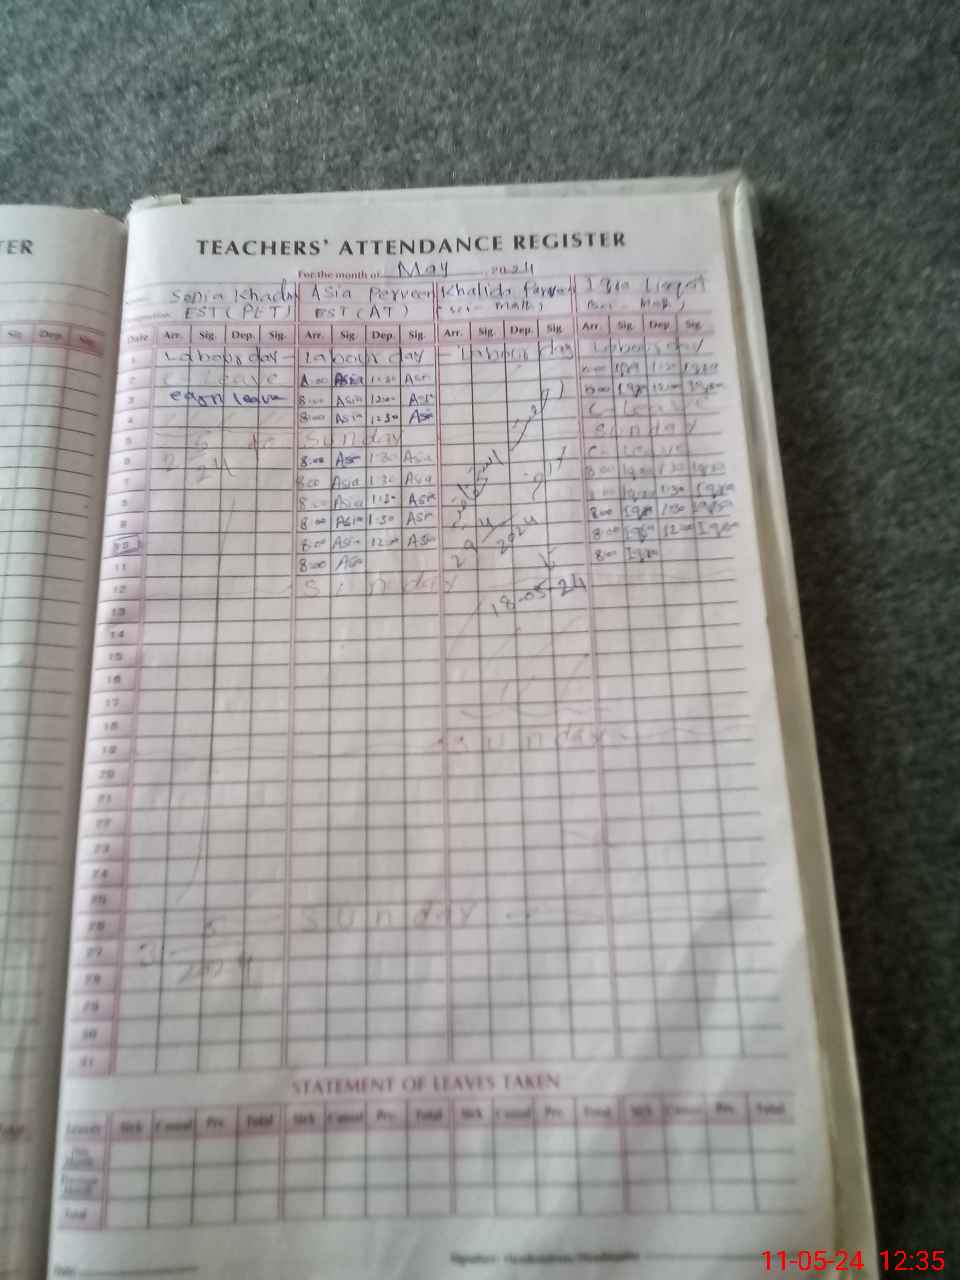 TER
TEACHERS' ATTENDANCE REGISTER
For the month of May 2024
Sonia Khadm Asia Perveen Khalida Parveen Iqra Liaqat
EST (PET) EST (AT)
Sig. Dep. Sig.
Date Arr. Sig. Dep. Sig. Arr. Sig. Dep. Sig. Arr. Sig. Dep. Sig. Arr. Sig. Dep. Sig.
1 Labour day - Labour day - Labour day Labour day
2 C. Leave 8:00 Asia 1:30 Asia 8:00 Iqra 1:30 Iqra
3 earn leave 8:00 Asia 12:00 Asia 8:00 Iqra 12:00 Iqra
4 8:00 Asia 12:30 Asia C. Leave
5 Sunday Sunday
6 8:00 Asia 1:30 Asia C. Leave
7 8:00 Asia 1:30 Asia 8:00 Iqra 1:30 Iqra
8 8:00 Asia 1:30 Asia 8:00 Iqra 1:30 Iqra
9 8:00 Asia 1:30 Asia 8:00 Iqra 1:30 Iqra
10 8:00 Asia 12:00 Asia 29 4 2024 8:00 Iqra 12:00 Iqra
11 8:00 Asia 8:00 Iqra
12 Sunday 18-05-24
13
14
15
16
17
18
19 Sunday
20
21
22
23
24
25
26 Sunday
27
28
29
30
31
STATEMENT OF LEAVES TAKEN
Leaves Sick Casual Prv. Total Sick Casual Prv. Total Sick Casual Prv. Total Sick Casual Prv. Total
This Month
Previous Month
Total
Date
11-05-24 12:35